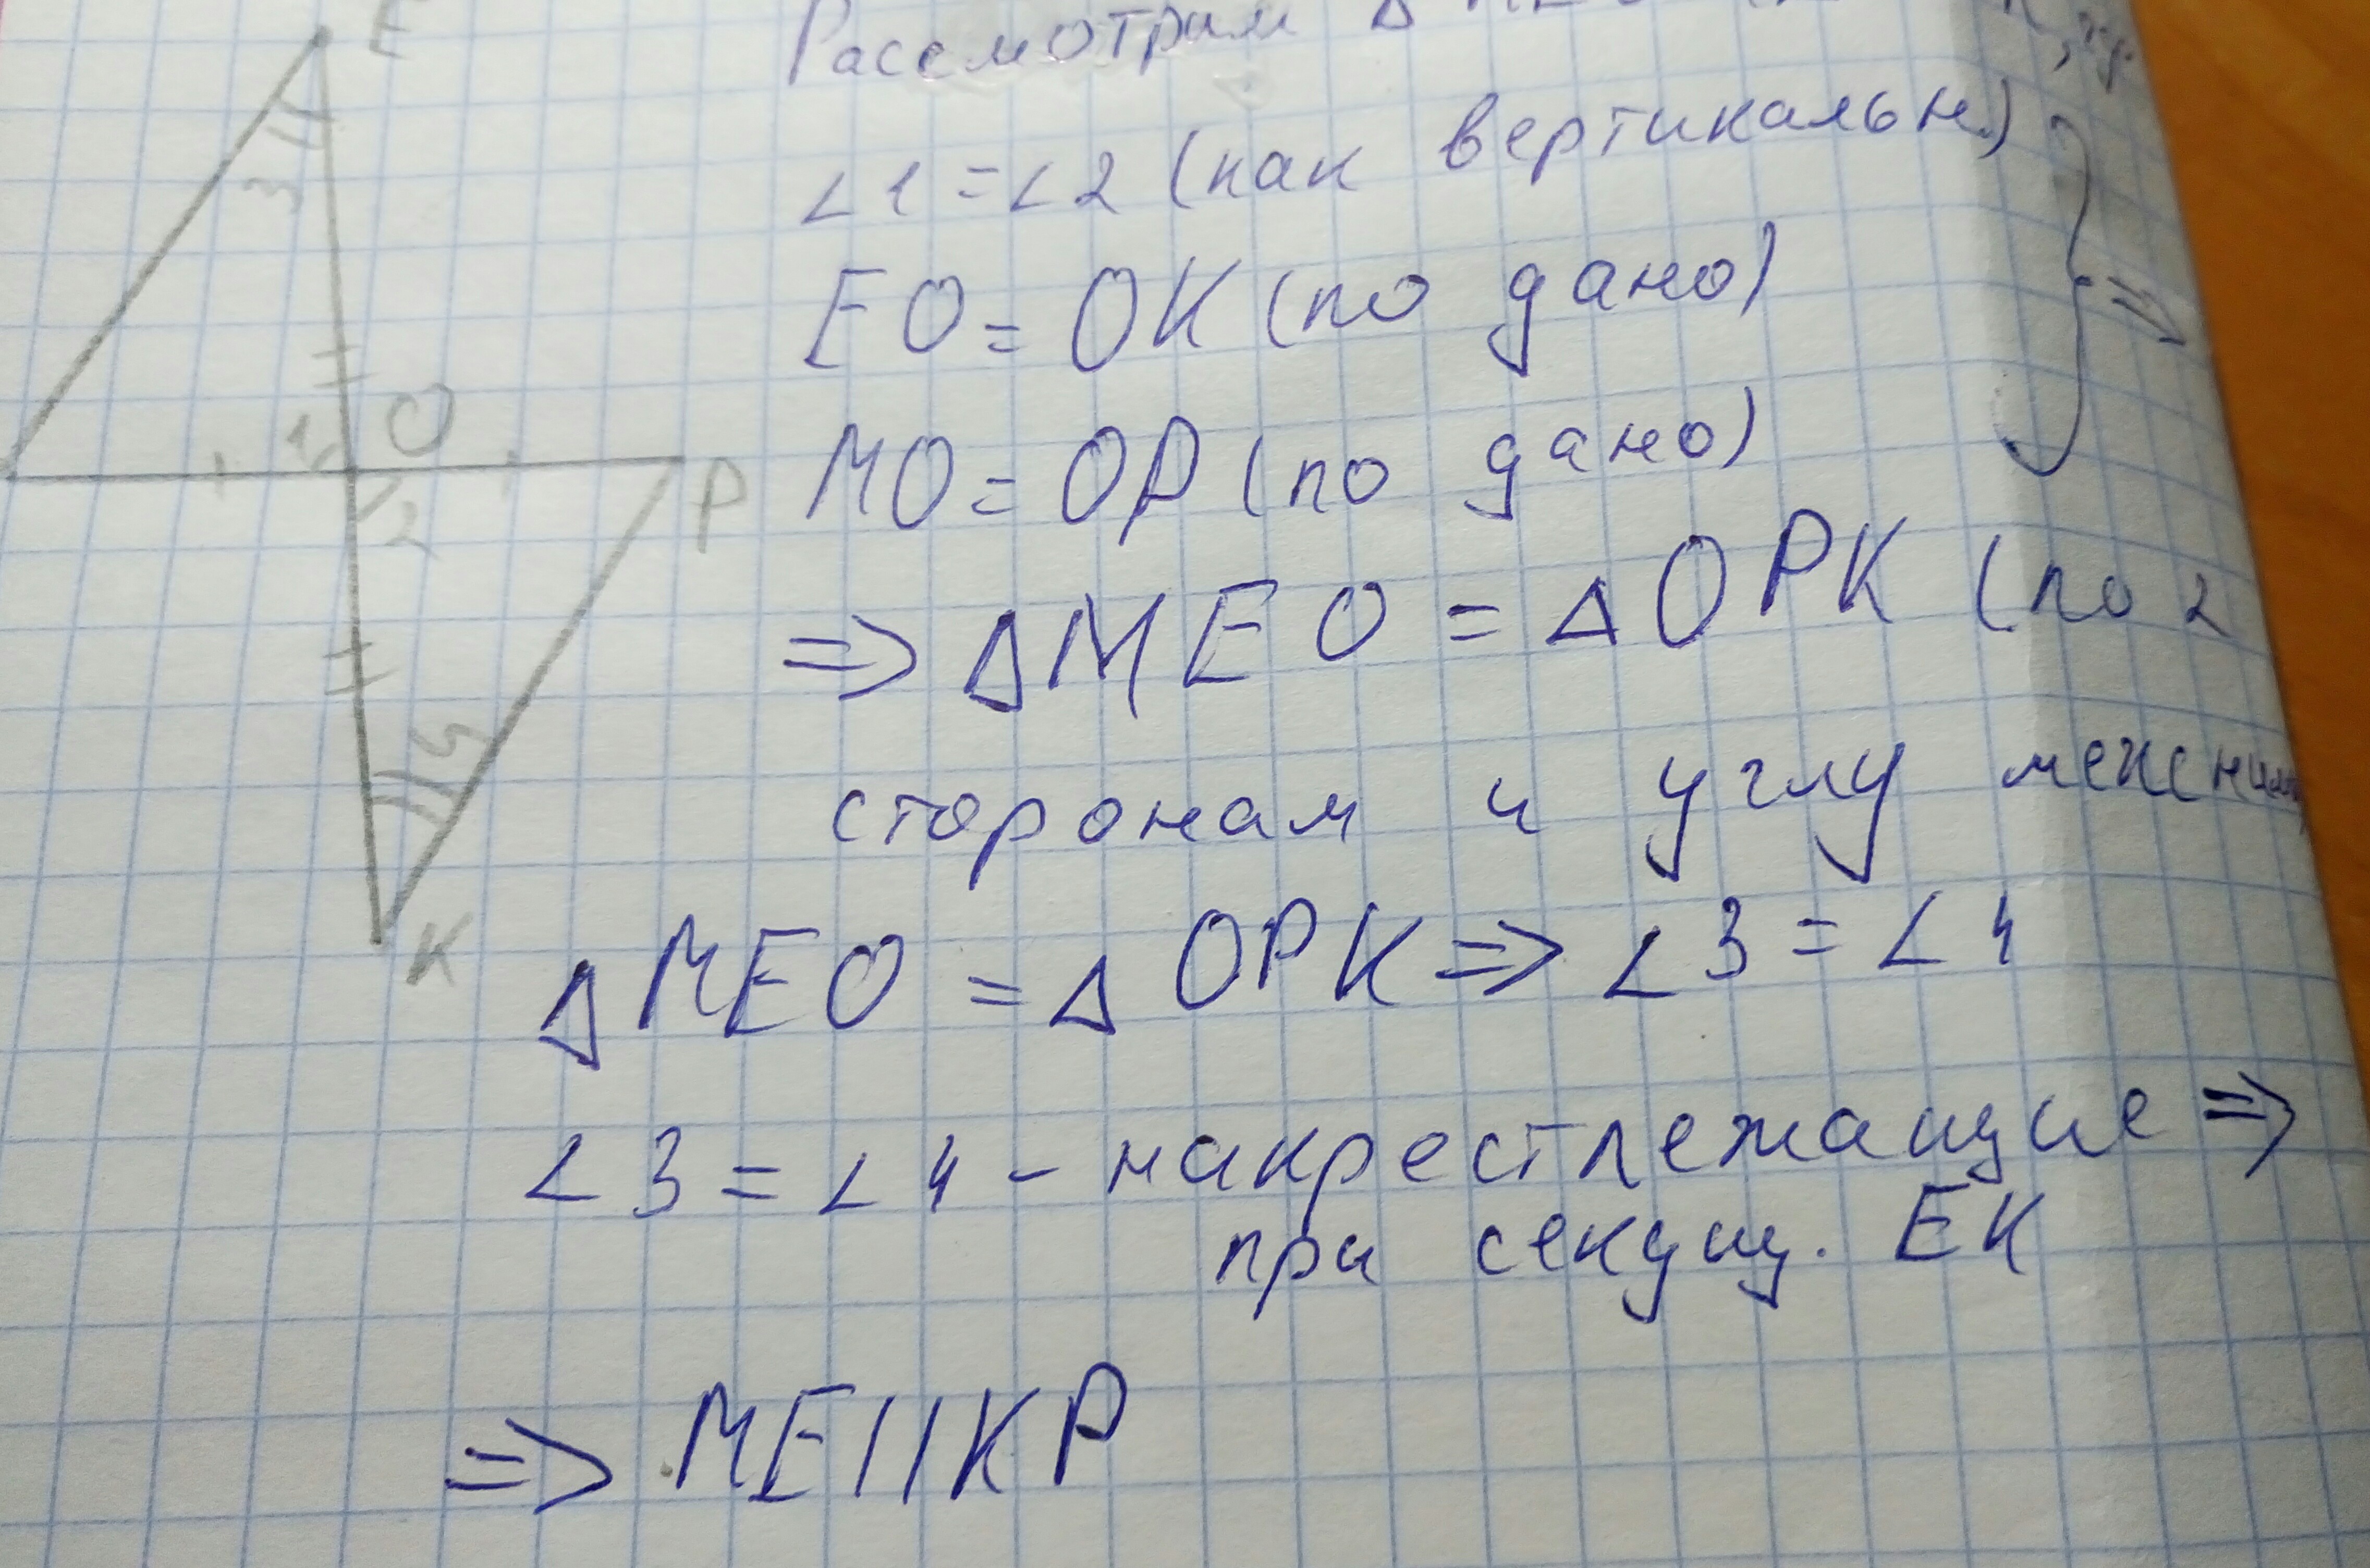 E
3
1
O
2
P
4
K
Рассмотрим Δ
∠1 = ∠2 (как вертикальн.)
EO = OK (по дано)
MO = OP (по дано)
⇒
⇒ ΔMEO = ΔOPK (по 2
сторонам и углу
ΔMEO = ΔOPK ⇒ ∠3 = ∠4
∠3 = ∠4 – накрестлежащие ⇒
при секущ. EK
⇒ ME||KP